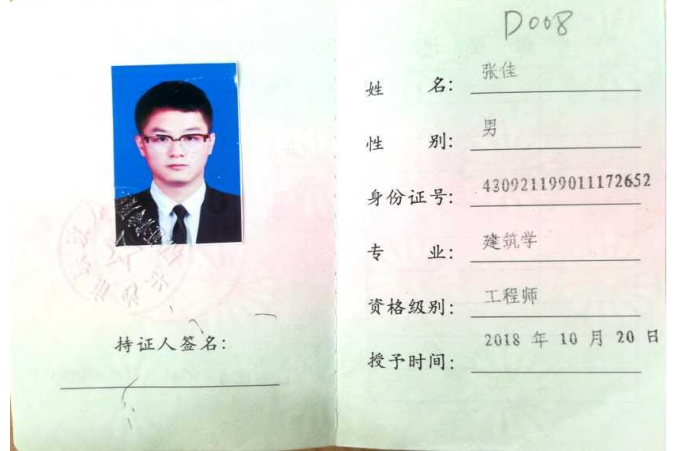 D008
姓 名: 张佳
性 别: 男
身份证号: 430921199011172652
专 业: 建筑学
资格级别: 工程师
授予时间: 2018 年 10 月 20 日
持证人签名: